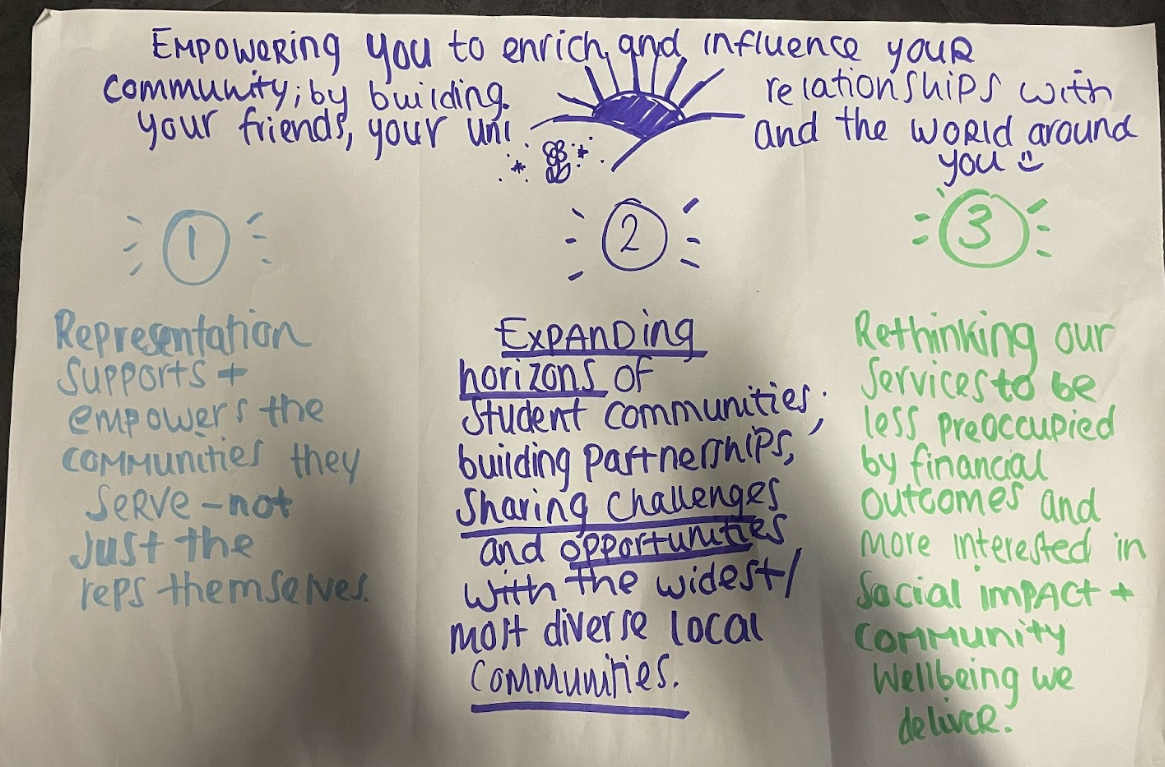 EMPOWERING you to enrich and influence your
community; by building. relationships with
your friends, your uni and the world around
you
1
Representation
supports +
empowers the
communities they
serve - not
just the
reps themselves.
2
EXPANDING
horizons of
student communities;
building partnerships,
sharing challenges
and opportunities
with the widest/
most diverse local
communities.
3
Rethinking our
services to be
less preoccupied
by financial
outcomes and
more interested in
social impact +
community
wellbeing we
deliver.